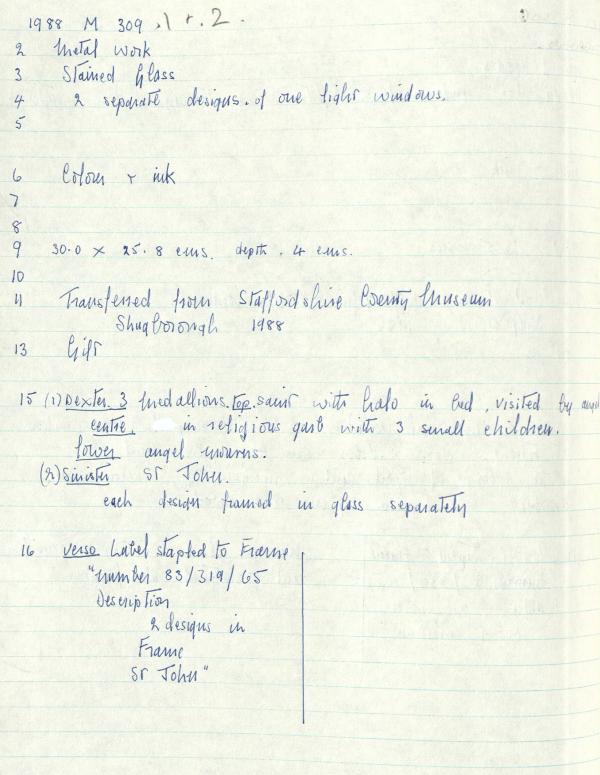 1988 M 309 .1 + .2.
2 Metal work
3 Stained Glass
4 2 separate designs. of one light windows.
5
6 Colour + ink
7
8
9 30.0 x 25.8 cms. depth .4 cms.
10
11 Transferred from Staffordshire County Museum
Shugborough 1988
13 Gift
15 (1) Dexter. 3 medallions. top. saint with halo in bed, visited by
centre, in religious garb with 3 small children.
lower angel mourns.
(2) Sinister St John.
each design framed in glass separately
16 verso Label stapled to Frame
"number 83/319/65
Description
2 designs in
Frame
St John"